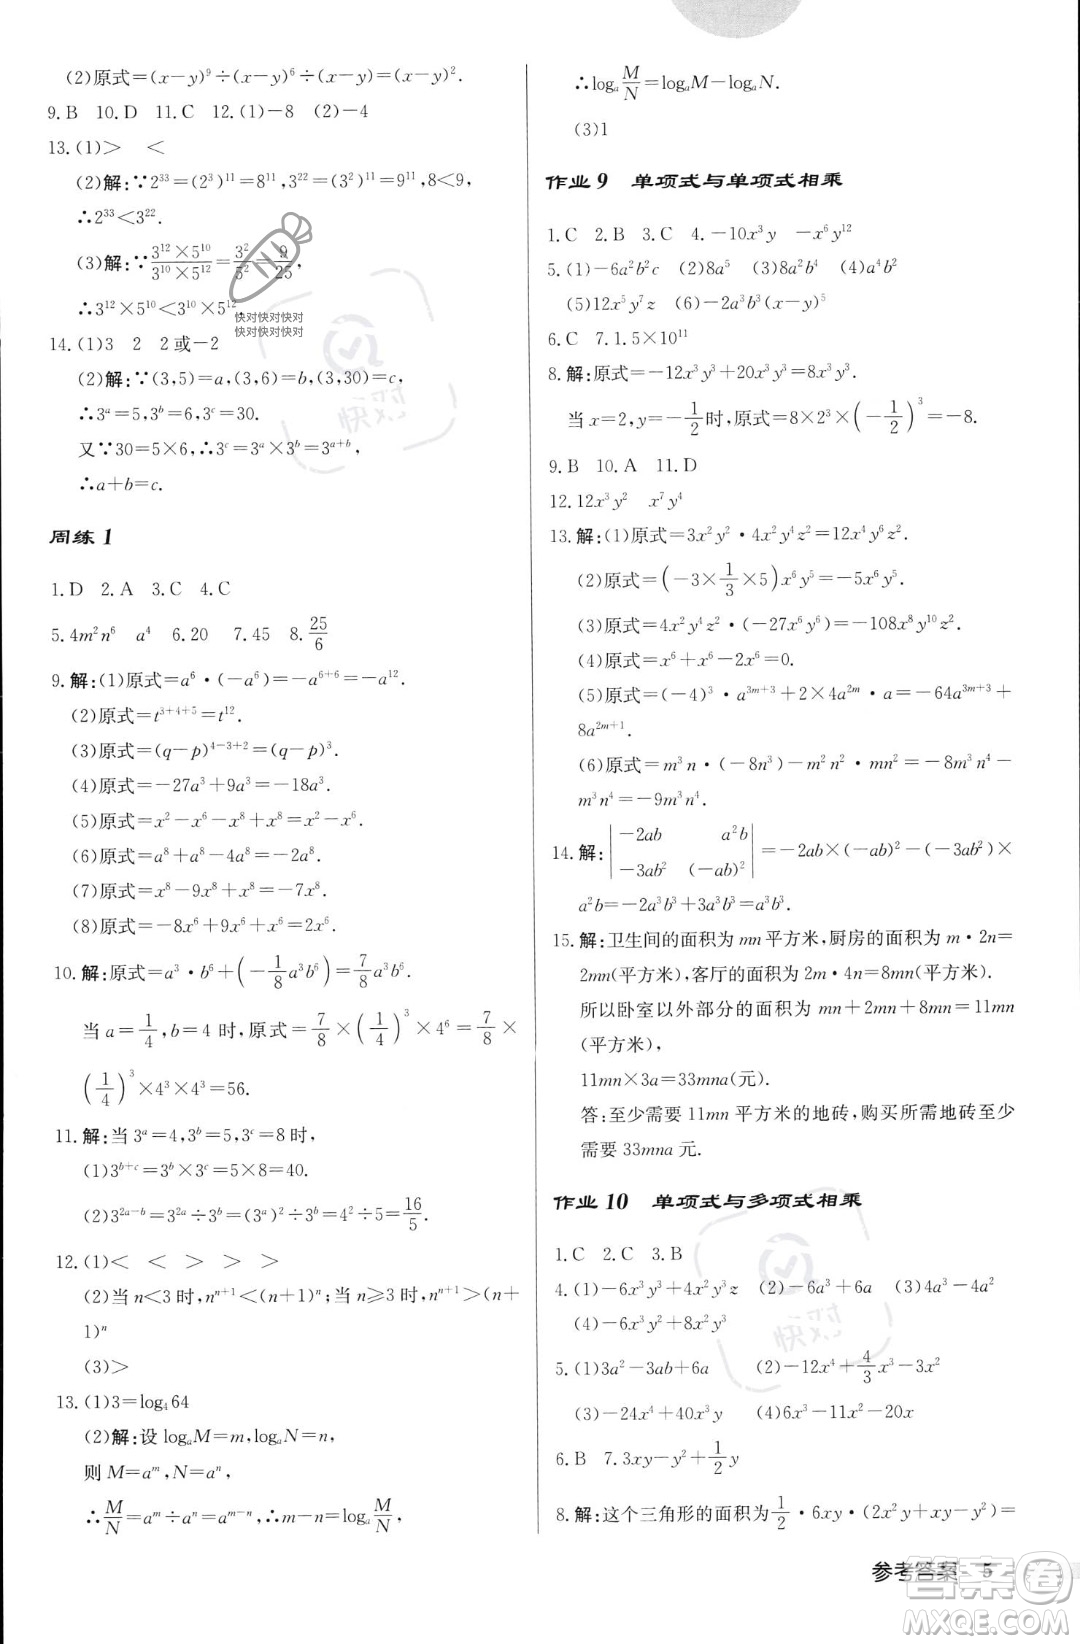 (2)原式=(x-y)⁹÷(x-y)⁶÷(x-y)=(x-y)².
9.B 10.D 11.C 12.(1)-8 (2)-4
13.(1)> <
(2)解:∵2³³=(2³)¹¹=8¹¹,3²²=(3²)¹¹=9¹¹,8<9,
∴2³³<3²².
(3)解:∵(3¹²×5¹⁰)/(3¹⁰×5¹²)=3²/5²=9/25,
∴3¹²×5¹⁰<3¹⁰×5¹².
快对快对快对
快对快对快对
14.(1)3 2 2或-2
(2)解:∵(3,5)=a,(3,6)=b,(3,30)=c,
∴3ᵃ=5,3ᵇ=6,3ᶜ=30.
又∵30=5×6,∴3ᶜ=3ᵃ×3ᵇ=3ᵃ⁺ᵇ,
∴a+b=c.
周练1
1.D 2.A 3.C 4.C
5.4m²n⁶ a⁴ 6.20 7.45 8.25/6
9.解:(1)原式=a⁶·(-a⁶)=-a⁶⁺⁶=-a¹².
(2)原式=t³⁺⁴⁺⁵=t¹².
(3)原式=(q-p)⁴⁻³⁺²=(q-p)³.
(4)原式=-27a³+9a³=-18a³.
(5)原式=x²-x⁶-x⁸+x⁸=x²-x⁶.
(6)原式=a⁸+a⁸-4a⁸=-2a⁸.
(7)原式=x⁸-8x⁸=-7x⁸.
(8)原式=-8x⁶+9x⁶+x⁶=2x⁶.
10.解:原式=a³·b⁶+(-1/8a³b⁶)=7/8a³b⁶.
当a=1/4,b=4时,原式=7/8×(1/4)³×4⁶=7/8×
(1/4)³×4³×4³=56.
11.解:当3ᵃ=4,3ᵇ=5,3ᶜ=8时,
(1)3ᵇ⁺ᶜ=3ᵇ×3ᶜ=5×8=40.
(2)3²ᵃ⁻ᵇ=3²ᵃ÷3ᵇ=(3ᵃ)²÷3ᵇ=4²÷5=16/5.
12.(1)< < > > >
(2)当n<3时,nⁿ⁺¹<(n+1)ⁿ;当n≥3时,nⁿ⁺¹>(n+
1)ⁿ
(3)>
13.(1)3=log₄64
(2)解:设logₐM=m,logₐN=n,
则M=aᵐ,N=aⁿ,
∴M/N=aᵐ÷aⁿ=aᵐ⁻ⁿ,∴m-n=logₐM/N,
∴logₐM/N=logₐM-logₐN.
(3)1
作业9 单项式与单项式相乘
1.C 2.B 3.C 4.-10x³y -x⁶y¹²
5.(1)-6a²b²c (2)8a⁵ (3)2a³b³ (4)a⁴b²
(5)12x⁵y⁷z (6)-2a³b³(x-y)⁵
6.C 7.1.5×10¹¹
8.解:原式=-12x³y³+20x³y³=8x³y³.
当x=2,y=-1/2时,原式=8×2³×(-1/2)³=-8.
9.B 10.A 11.D
12.12x³y² x⁷y⁴
13.解:(1)原式=3x²y²·4x²y⁴z²=12x⁴y⁶z².
(2)原式=(-3×1/3×5)x⁶y⁵=-5x⁶y⁵.
(3)原式=4x²y⁴z²·(-27x⁶y⁶)=-108x⁸y¹⁰z².
(4)原式=x⁶+x⁶-2x⁶=0.
(5)原式=(-4)³·a³ᵐ⁺³+2×4a²ᵐ·a=-64a³ᵐ⁺³+
8a²ᵐ⁺¹.
(6)原式=m³n·(-8n³)-m²n²·mn²=-8m³n⁴-
m³n⁴=-9m³n⁴.
14.解:|-2ab a²b|=-2ab×(-ab)²-(-3ab²)×
|-3ab² (-ab)²|
a²b=-2a³b³+3a³b³=a³b³.
15.解:卫生间的面积为mn平方米,厨房的面积为m·2n=
2mn(平方米),客厅的面积为2m·4n=8mn(平方米).
所以卧室以外部分的面积为mn+2mn+8mn=11mn
(平方米),
11mn×3a=33mna(元).
答:至少需要11mn平方米的地砖,购买所需地砖至少
需要33mna元.
作业10 单项式与多项式相乘
1.C 2.C 3.B
4.(1)-6x³y³+4x⁴y³z (2)-6a³+6a (3)4a³-4a²
(4)-6x³y²-x²y³
5.(1)3a²-3ab+6a (2)-12x⁴+4/3x³-3x²
(3)-24x⁴+40x³y (4)6x³-11x²-20x
6.B 7.3xy-y²+1/2y
8.解:这个三角形的面积为1/2·6xy·(2x²y+xy-y²)=
快对
快对
参考答案 5
答案卷
MXQE.COM